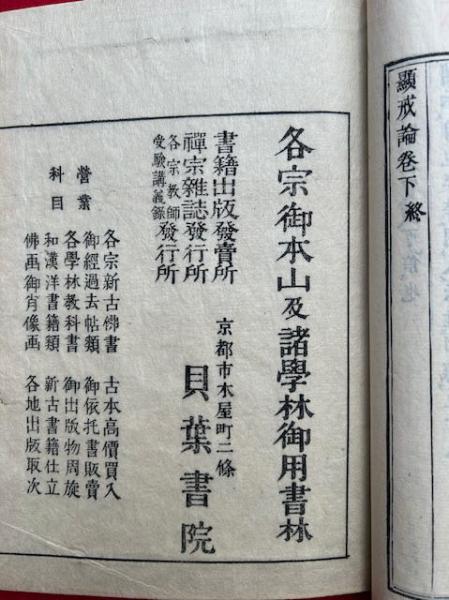 顯戒論卷下終
各宗御本山及諸學林御用書林
書籍出版發賣所
禪宗雜誌發行所
各宗教師受驗講義錄發行所
京都市木屋町二條
貝葉書院
營業科目
各宗新古佛書 古本高價買入
御經過去帖類 御依托書販賣
各學林教科書 御出版物周旋
和漢洋書籍類 新古書籍仕立
佛画御肖像画 各地出版取次